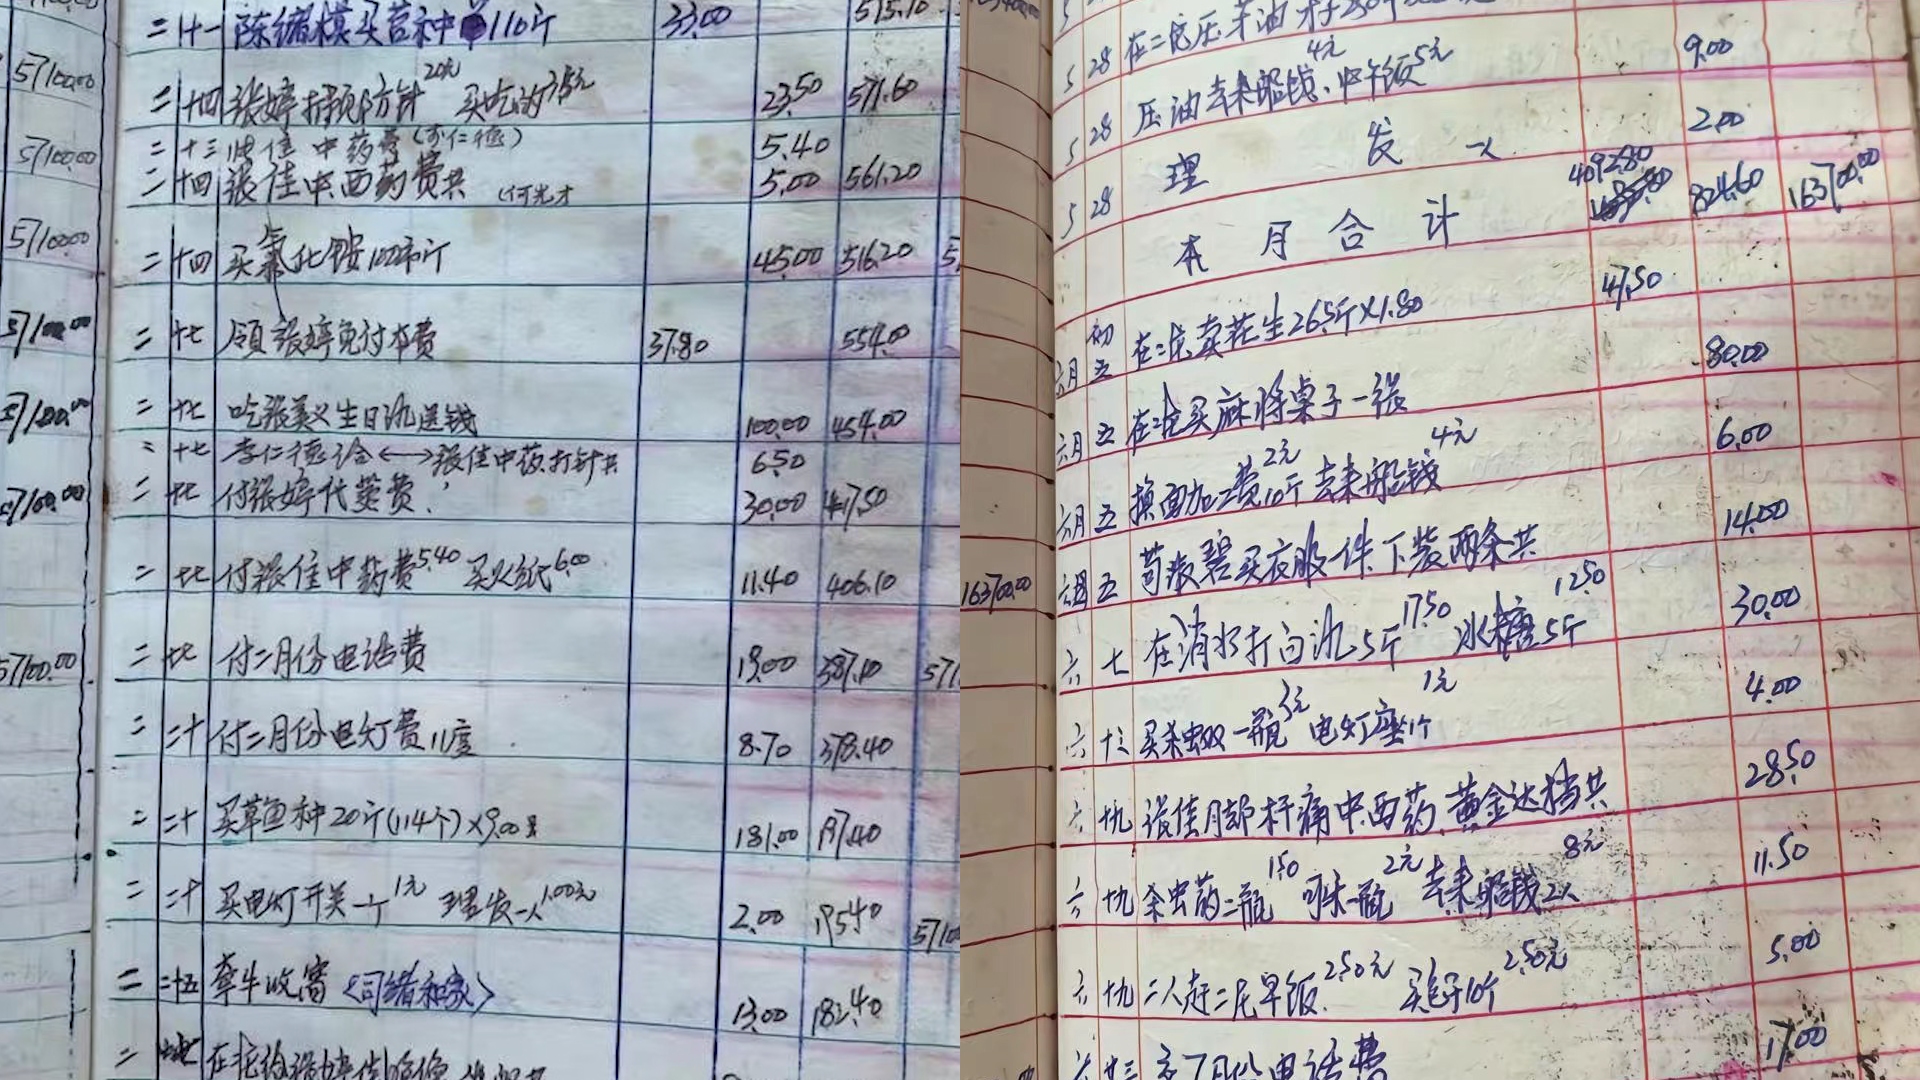 二 十一 陈绪模买苕种110斤 33.00 515.10
5710000
二 十四 张婷打预防针20元 买吃的3.5元 23.50 571.60
二 十三 中药费(李仁德) 5.40
5710000
二 十四 张佳中西药费共 (何光才 5.00 561.20
5710000
二 十四 买氯化铵100市斤 45.00 516.20
5710000
二 十七 领张婷免付本费 37.80 554.00
5710000
二 十七 吃张美义生日酒送钱 100.00 454.00
二 十七 李仁德治←→张佳中药.打针共 6.50
5710000
二 十七 付张婷代菜费. 30.00 417.50
二 十七 付张佳中药费5.40 买火纸6.00 11.40 406.10
5710000
二 十七 付二月份电话费 19.00 387.10 571
二 二十 付二月份电灯费11度 8.70 378.40
二 二十 买草鱼种20斤(114个)×9.00 181.00 197.40
二 二十 买电灯开关一个1元 理发一人1.00元 2.00 195.40 5710
二 二十五 牵牛收窝<司绪和家> 13.00 182.40
二
5 28 在二沱压羊油
5 28 压油去来船钱4元、中午饭5元 9.00
5 28 理发一人 2.00
5 28 本月合计 4092.80 824.60 163700.00
六月 初五 在二沱卖花生26.5斤×1.80 47.50
六月 五 在二沱买麻将桌子一张 80.00
六月 五 换面加工费10斤2元 去来船钱4元 6.00
163700.00
六月 五 苟淑碧买衣服一件.下装两条共 14.00
六 七 在消水打白酒5斤17.50 冰糖5斤12.50 30.00
六 十三 买杀虫双一瓶3元 电灯座1个1元 4.00
六 十九 张佳月部杆痛中西药.黄金达档共 28.50
六 十九 余虫药二瓶1.50 可乐一瓶2元 去来船钱2人8元 11.50
六 十九 二人赶二沱早饭2.50元 买包子10个2.50元 5.00
六 廿三 交7月份电话费 17.00